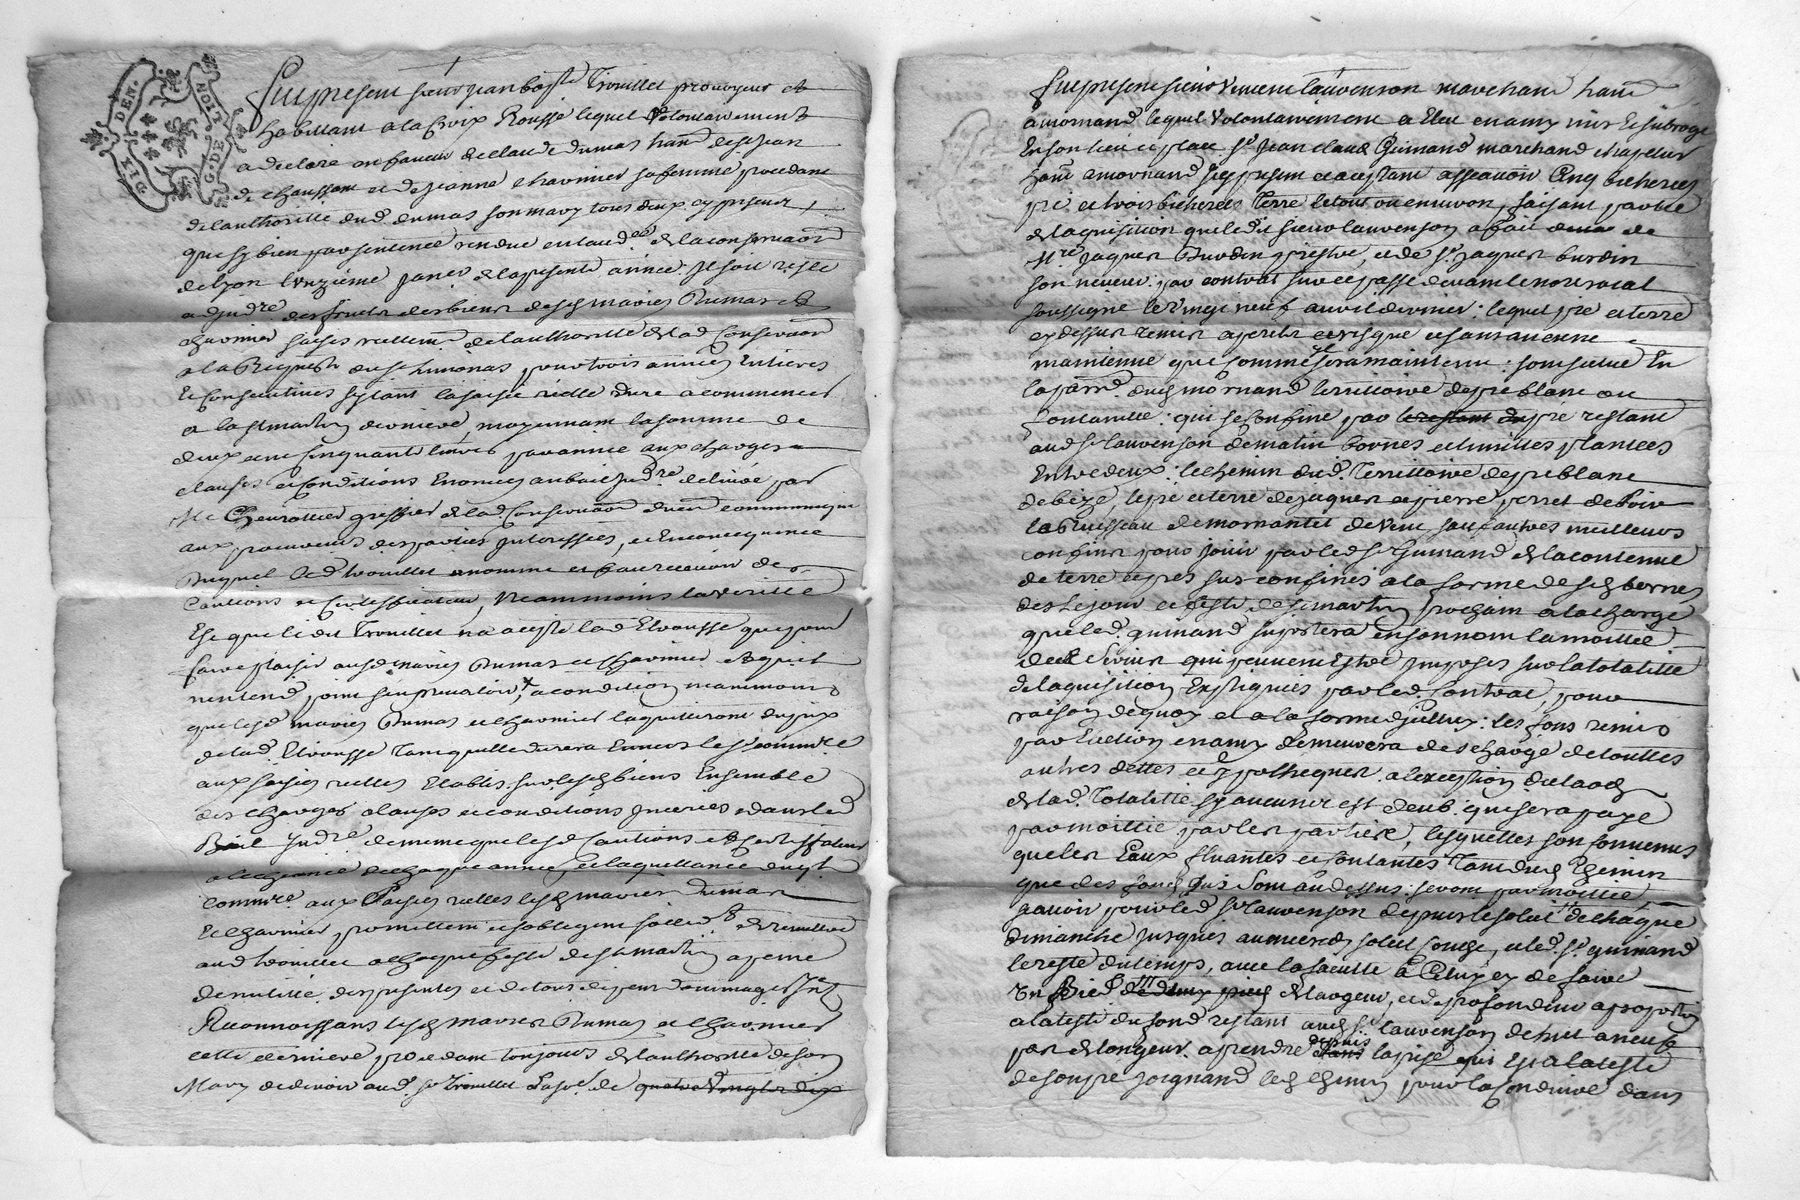 DI. DEN.
G. DE NOIT
Fut present sieur jean bapte Trouillet pourvoyeur et
habittant a la Croix Rousse lequel volontairement
a declare en faveur de claude dumas hant de st jean
de chaussan et de jeanne chavinier sa femme procedant
de lauthoritté dud. dumas son mary tous deux cy presents
que sy bien par sentence rendue en laud.ce de la conservaōn
de lyon l'onzième janer de la presente année. Il soit resté
adjudre des fruits des biens desd mariés Dumas et
chavinier saisis reellemt de lauthoritté de lad Conservaōn
a la Requeste du sr pour trois années Entieres
Et Consecutives sytant la saisie réelle dure a commencer
a la st martin derniere, moyennant la somme de
deux cent cinquante livres par année aux charges
clauses et Conditions Enoncées au bail judre delivré par
Me greffier de lad. Conservaōn communiqué
aux procureurs des parties Interessées, et En consequence
Duquel led trouillet a nommé et fait recevoir des
Cautions et Certifficateur, Neammoins la veritté
Est que ledit Trouillet n'a accepté lad Etrousse que pour
faire plaisir ausd mariés Dumas et Chavinier et quil
nentend point sen prevaloir, a condition neanmoins
que lesd mariés Dumas et chavinier laquitteront du prix
de lad. Etrousse tant quelle durera Envers le sr commre
aux saisies réelles Etablis sur lesd biens Ensemble
des charges clauses et conditions Inserées dans led
Bail Judre de meme que lesd Cautions et Certifficateur
a lecheance de chaque année et la quittance dud sr
commre. aux Saisies réelles lesd mariés dumas
Et chavinier promettent et sobligent sollidt de remettre
aud trouillet a chaque feste de st martin a peine
de nullité des presentes et de tous depens dommages Intts
Reconnoissans lesd mariés Dumas et chavinier
cette derniere procedant toujours de lauthoritté de son
Mary de devoir aud. sr Trouillet La soe. de quatre vingt dix
Fut present sieur Vincent lauvenson marchand hant
a mornand lequel volontairement a Eleu en amy mis et subrogé
En son lieu et place sr Jean claude Guinand marchand chapelier
hant a mornand icy present et aceptant assçavoir Cinq bicherées
pré et trois bicherées Terre le tout ou environ, faisant partie
de laquisition que ledit sieur lauvenson a fait de
Mre Jaques Burdin prestre, et de sr. jaques burdin
son neveux par contrat sur ce passé devant le notre royal
soussigné le vingt neuf avril dernier: lequel pré et terre
cy dessus remis a peril et risque et sans aucune
maintenue que comme il sera maintenu: sont situé En
la parr. dud mornand territoire de pré blanc ou
fontanille: qui se confine par le restant du pré restant
aud sr lauvenson de matin bornes et limittes plantées
Entre deux: le chemin dud. Territoire de pré blanc
de bize, le pré et terre de jaques et pierre perret de soir
le Ruisseau de mornantet de vent sauf autres meilleurs
confins pour jouir par led sr Guinand de la contenue
de terre et pres sus confinés a la forme desd bornes
des le jour et feste de st martin prochain a la charge
que led. guinand suportera en son nom la moittié
des Servis qui peuvent Estre Imposés sur la totalité
de laquisition Expliquées par led. Contrat, pour
raison de quoy et a la forme dicelluy: les fons remis
par Election en amy demeurera deschargé de touttes
autres dettes et hypotheques a lexception
de lad. Totalitté sy aucuns est deub qui sera payé
par moittié par les parties, lesquelles son convenus
que les Eaux fluantes et coulantes Tant dud Chemin
que des fonds qui Sont au dessus seront par moittié
sçavoir pour led sr lauvenson depuis le soleil de chaque
dimanche jusques au mercredy soleil couché, et led. sr guinand
le reste du temps, avec la faculté a Celuy cy de faire
Un Bied de deux pieds de largeur, et de profondeur aproportion
a la teste du fond restant aud sr lauvenson de huit a neuf
pas de longeur a prendre depuis dans la prise qui Est a la teste
de son pré joignand led Chemin pour la conduire dans